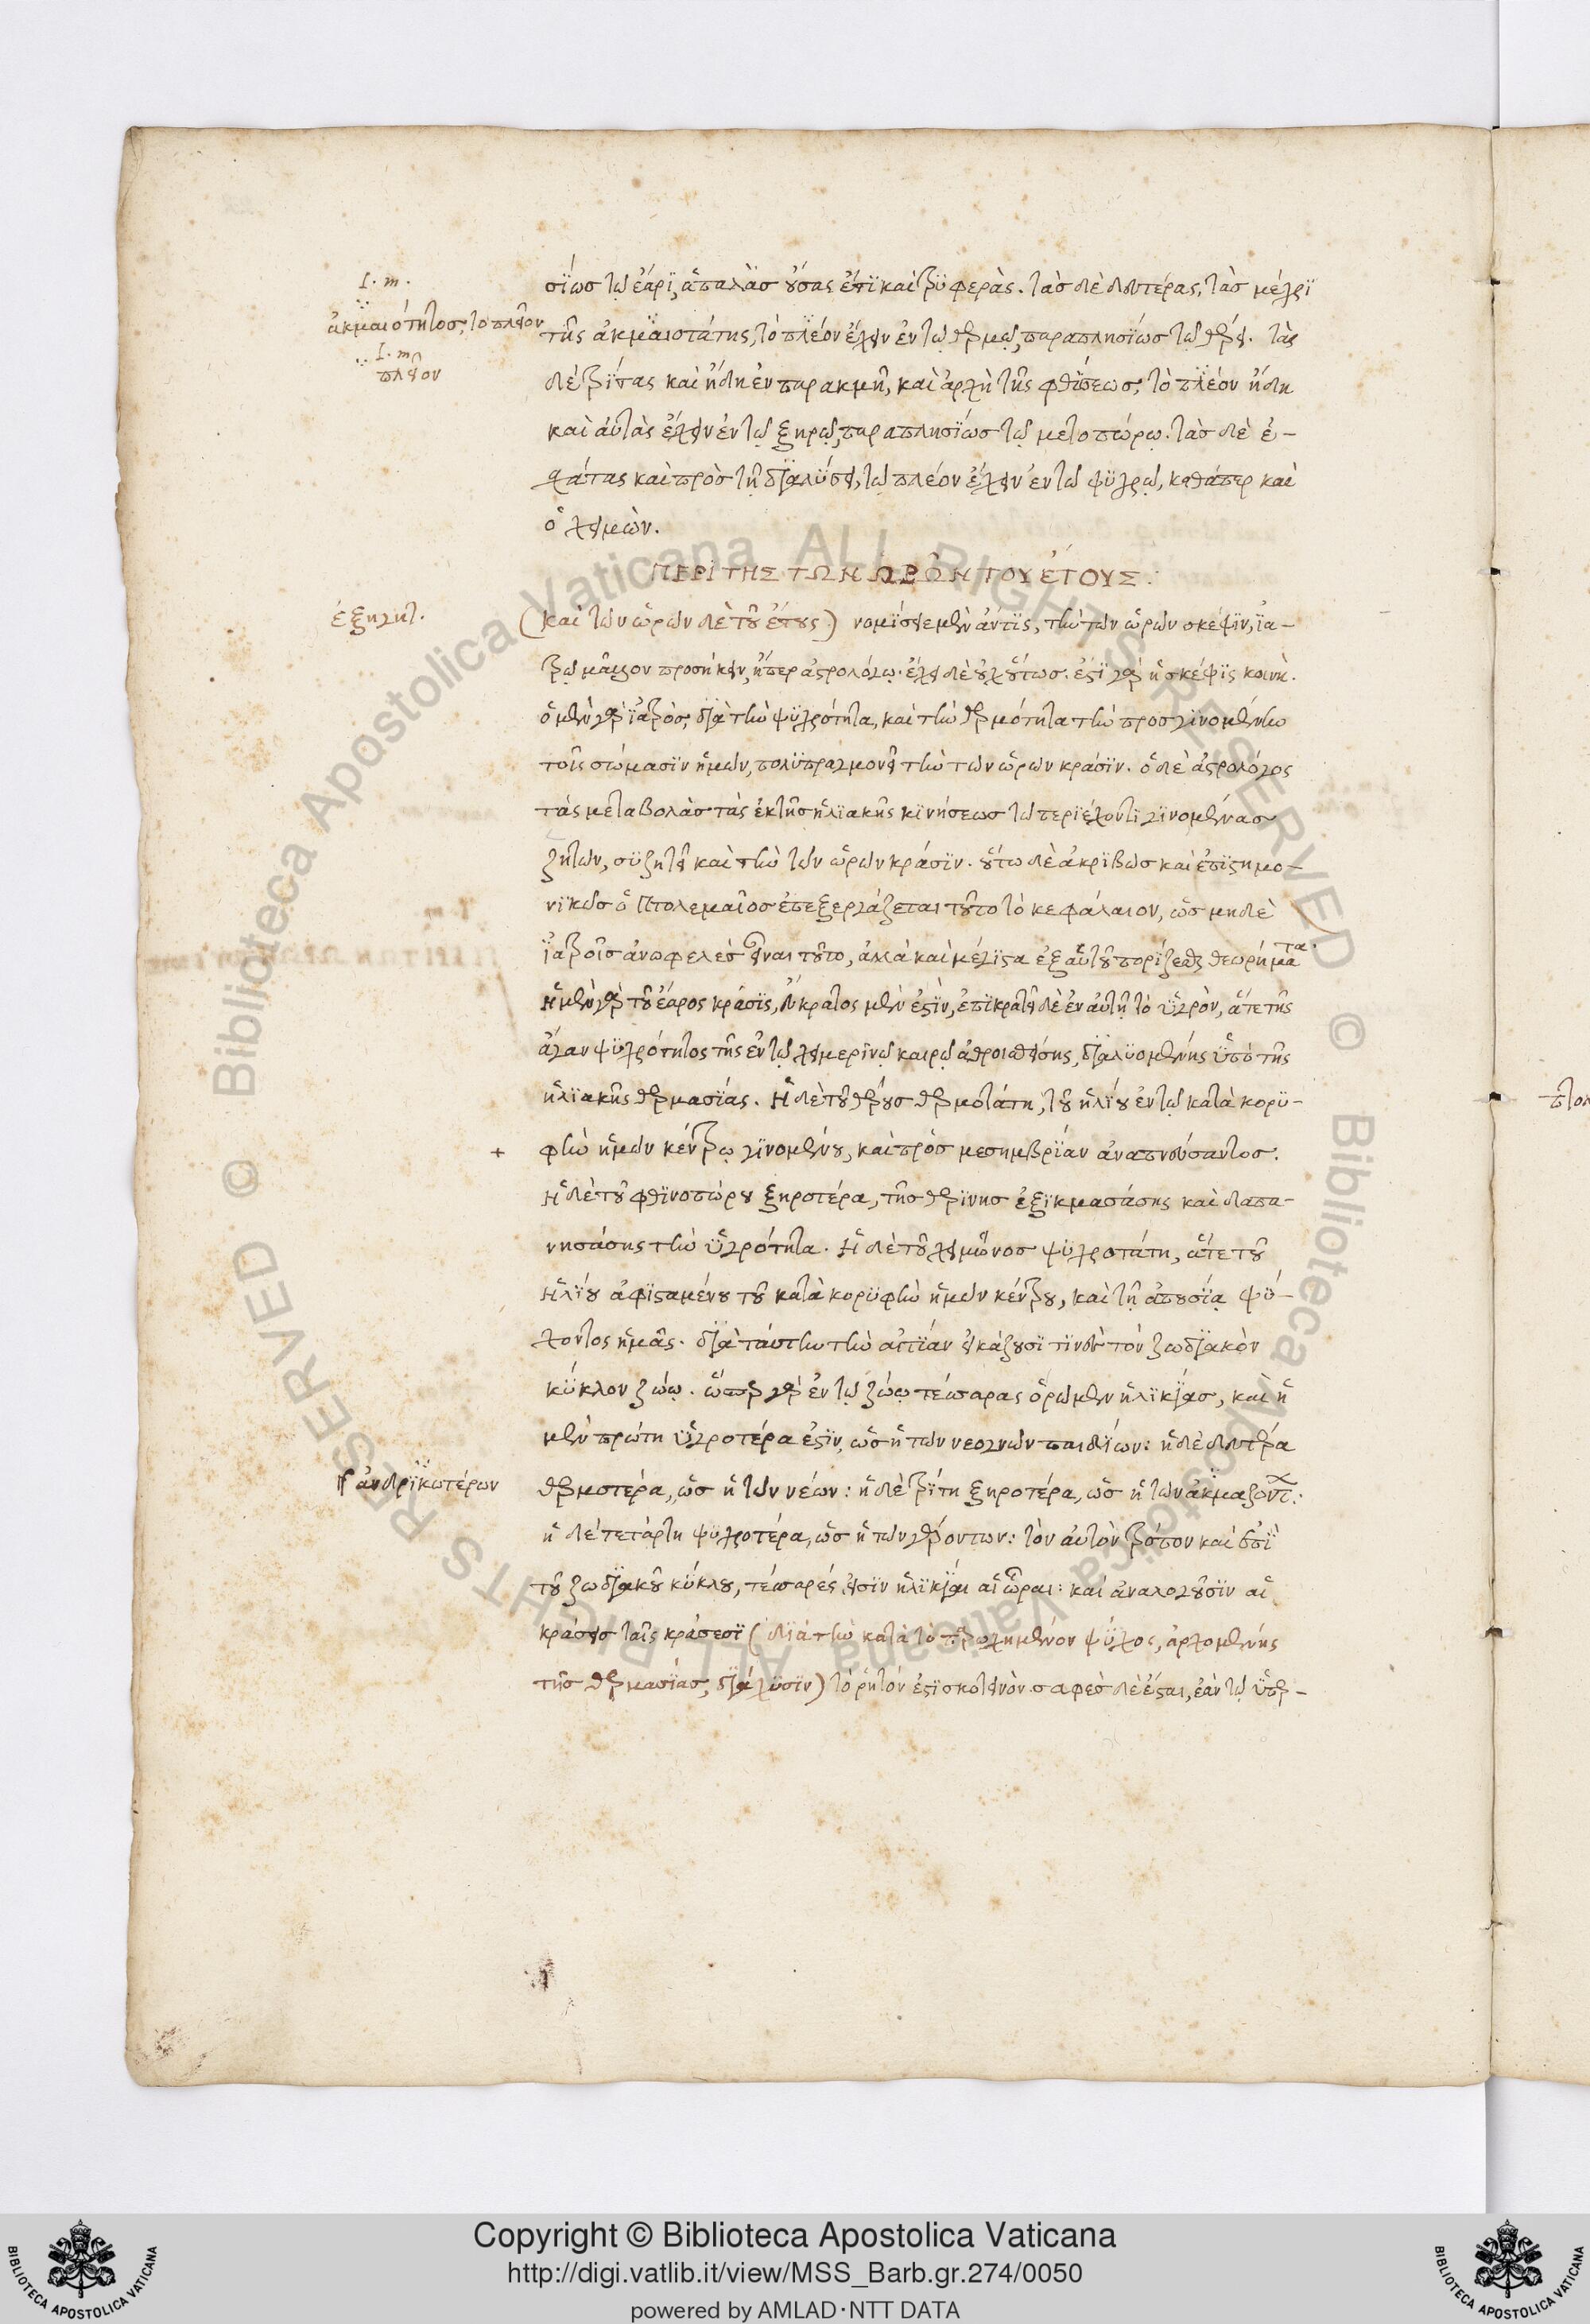 I. m.
ἀκμαιότητος, το πλεῖον
I. m.
πλεῖον
σίως τῷ ἔαρι, ἁπαλὰς οὔσας ἔτι καὶ τρυφεράς. τὰς δὲ δευτέρας, τὰς μέχρι
τῆς ἀκμαιοτάτης, τὸ πλέον ἔχειν ἐν τῷ θερμῷ, παραπλησίως τῷ θέρει. τὰς
δὲ τρίτας καὶ ἤδη ἐν παρακμῇ, καὶ ἀρχῇ τῆς φθίσεως, τὸ πλέον ἤδη
καὶ αὐτὰς ἔχειν ἐν τῷ ξηρῷ, παραπλησίως τῷ μετοπώρῳ. τὰς δὲ ἐ-
σχάτας καὶ πρὸς τῇ διαλύσει, τῷ πλέον ἔχειν ἐν τῷ ψυχρῷ, καθάπερ καὶ
ὁ χειμών.
ΠΕΡΙ ΤΗΣ ΤΩΝ ὩΡΩΝ ΤΟΥ ἔΤΟΥΣ:
ἐξηγητ.
(καὶ τῶν ὡρῶν δὲ τοῦ ἔτους) νομίσειε μὲν ἄν τις, τὴν τῶν ὡρῶν σκέψιν, ἰα-
τρῷ μᾶλλον προσήκειν, ἤπερ ἀστρολόγῳ. ἔχει δὲ οὐχ οὕτως. ἐστὶ γὰρ ἡ σκέψις κοινή.
ὁ μὲν γὰρ ἰατρὸς, διὰ τὴν ψυχρότητα, καὶ τὴν θερμότητα τὴν προσγινομένην
τοῖς σώμασιν ἡμῶν, πολυπραγμονεῖ τὴν τῶν ὡρῶν κρᾶσιν. ὁ δὲ ἀστρολόγος
τὰς μεταβολὰς τὰς ἐκ τῆς ἡλιακῆς κινήσεως τῷ περιέχοντι γινομένας
ζητῶν, συζητεῖ καὶ τὴν τῶν ὡρῶν κρᾶσιν. οὕτω δὲ ἀκριβῶς καὶ ἐπιστημο-
νικῶς ὁ Πτολεμαῖος ἐπεξεργάζεται τοῦτο τὸ κεφάλαιον, ὡς μηδὲ
ἰατροῖς ἀνωφελὲς εἶναι τοῦτο, ἀλλὰ καὶ μέγιστα ἐξ αὐτοῦ πορίζεσθαι θεωρήματα.
Ἡ μὲν γὰρ τοῦ ἔαρος κρᾶσις, εὔκρατος μὲν ἐστὶν, ἐπικρατεῖ δὲ ἐν αὐτῇ τὸ ὑγρὸν, ἅτε τῆς
ἄγαν ψυχρότητος τῆς ἐν τῷ χειμερινῷ καιρῷ ἀθροισθείσης, διαλυομένης ὑπὸ τῆς
ἡλιακῆς θερμασίας. Ἡ δὲ τοῦ θέρους θερμοτάτη, τοῦ ἡλίου ἐν τῷ κατὰ κορυ-
+ φὴν ἡμῶν κέντρῳ γινομένου, καὶ πρὸς μεσημβρίαν ἀναπνεύσαντος.
Ἡ δὲ τοῦ φθινοπώρου ξηροτέρα, τῆς θερινῆς ἐξικμασάσης καὶ δαπα-
νησάσης τὴν ὑγρότητα. Ἡ δὲ τοῦ χειμῶνος ψυχροτάτη, ἅτε τοῦ
Ἡλίου ἀφισταμένου τοῦ κατὰ κορυφὴν ἡμῶν κέντρου, καὶ τῇ ἀπουσίᾳ ψύ-
χοντος ἡμᾶς. διὰ ταύτην τὴν αἰτίαν εἰκάζουσί τινες τὸν ζωδιακὸν
κύκλον ζώῳ. ὥσπερ γὰρ ἐν τῷ ζώῳ τέσσαρας ὁρῶμεν ἡλικίας, καὶ ἡ
μὲν πρώτη ὑγροτέρα ἐστὶν, ὡς ἡ τῶν νεογνῶν παιδίων: ἡ δὲ δευτέρα
γρ ἀνδρικωτέρων
θερμοτέρα, ὡς ἡ τῶν νέων: ἡ δὲ τρίτη ξηροτέρα, ὡς ἡ τῶν ἀκμαζόντων:
ἡ δὲ τετάρτη ψυχροτέρα, ὡς ἡ τῶν γερόντων: τὸν αὐτὸν τρόπον καὶ ἐπὶ
τοῦ ζωδιακοῦ κύκλου, τέσσαρές εἰσιν ἡλικίαι αἱ ὧραι: καὶ ἀναλογοῦσιν αἱ
κράσεις ταῖς κράσεσι (διὰ τὴν κατὰ τὸ παρῳχημένον ψύχος, ἀρχομένης
τῆς θερμασίας, διάχυσιν) τὸ ῥητόν ἐστι σκοτεινὸν. σαφὲς δὲ ἔσται, ἐὰν τῷ ὑπερ-
Copyright © Biblioteca Apostolica Vaticana
http://digi.vatlib.it/view/MSS_Barb.gr.274/0050
powered by AMLAD·NTT DATA